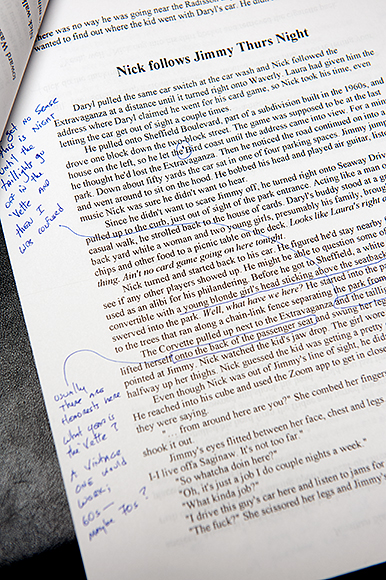 here was no way he was going near the Radisson
wanted to find out where the kid went with Daryl's car. He didn't
Nick follows Jimmy Thurs Night
Daryl pulled the same car switch at the car wash and Nick followed the
Extravaganza at a distance until it turned right onto Waverly. Laura had given him the
address where Daryl claimed he went for his card game, so Nick took his time, even
letting the car get out of sight a couple times.
He pulled onto Sheffield Boulevard, part of a subdivision built in the 1960s, and
drove one block down the two-block street. The game was supposed to be at the last
house on the left, so he let the Ford coast until the address came into view. For a min
he thought he'd lost the Extravaganza. Then he noticed the road continued on into a
park. Down about fifty yards the car sat in one of four parking spaces. Jimmy jum
and went around to sit on the hood. He bobbed his head and played air guitar, list
music Nick was sure he didn't want to hear.
Since he didn't want to scare Jimmy off, he turned right onto Seaway Dro
pulled up to the curb, just out of sight of the park entrance. Acting like a man
casual walk, he strolled back to the house of cards. Daryl's buddy stood at a g
back yard while a woman and two young girls, presumably his family, brough
chips and other food to a picnic table on the deck. Looks like Laura's right o
thing. Ain't no card game going on here tonight.
Nick turned and started back to his car. He figured he'd stay nearby
see if any other players showed up. He might be able to question some of
used as an alibi for his philandering. Before he got to Sheffield, a whit
convertible with a young blonde girl's head sticking above the seatback
swerved into the park. Well, what have we here? He started into the p
to the trees that ran along a chain-link fence separating the park from
The Corvette pulled up next to the Extravaganza and the
lifted herself onto the back of the passenger seat and swung her
pointed at Jimmy. Nick watched the kid's jaw drop. The girl wore
halfway up her thighs. Nick guessed the kid was getting a pretty
Even though Nick was out of Jimmy's line of sight, he did
He reached into his cube and used the Zoom app to get in close
they were saying.
"… from around here are you?" She combed her finger
shook it out.
Jimmy's eyes flitted between her face, chest and legs
I-I live offa Saginaw. It's not too far."
"So whatcha doin here?"
"Oh, it's just a job I do couple nights a week."
"What kinda job?"
"I drive this guy's car here and listen to jams fer
"The fuck?" She scissored her legs and Jimmy's
get no sense
is night
the
go
up in the
Vette and
then I
was confused
usually
there are
Headrests here
what year is
the Vette?
A vintage
one would
work;
60s—
maybe 70s?